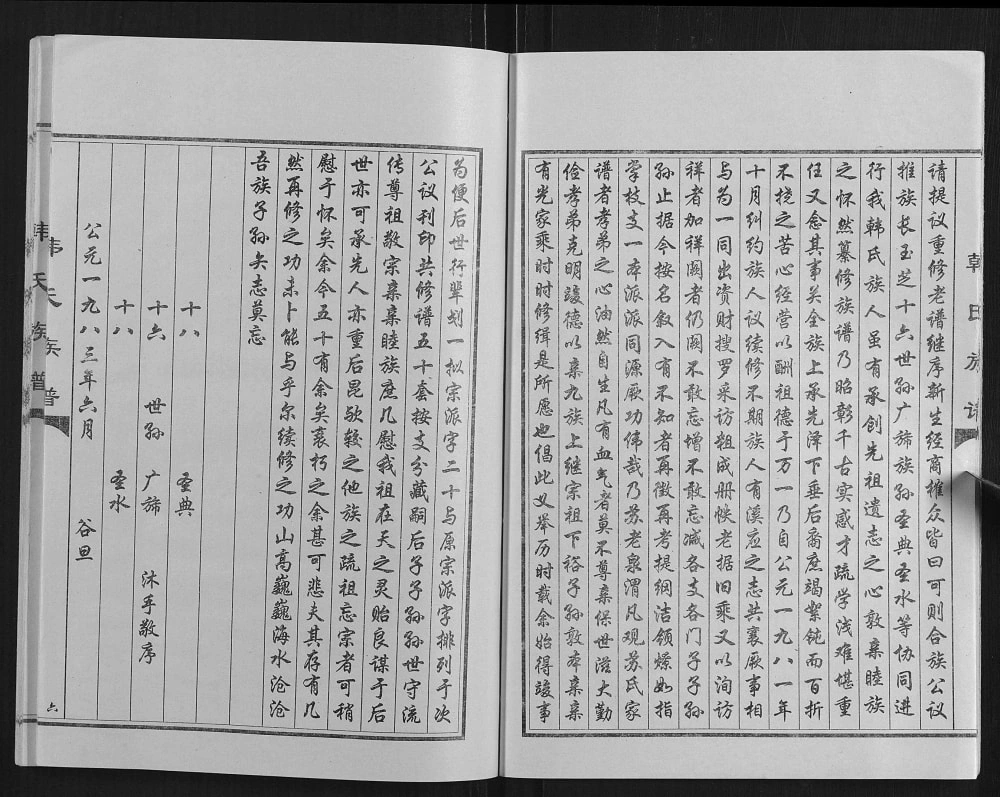 韩氏族谱
请提议重修老谱继序新生经商摧众皆曰可则合族公议
推族长玉芝十六世孙广旆族孙圣典圣水等协同进
行我韩氏族人虽有承创先祖遗志之心敦亲睦族
之怀然纂修族谱乃昭彰千古实感才疏学浅难堪重
任又念其事关全族上承先泽下垂后裔庶竭絮钝而百折
不挠之苦心经营以酬祖德于万一乃自公元一九八一年
十月纠约族人议续修不期族人有溪应之志共襄厥事相
与为一同出资财搜罗采访粗成册帙老据旧乘又以洵访
祥者加祥阙者仍阙不敢忘增不敢忘减各支各门子子孙
孙止据今按名叙入有不知者再徵再考提纲洁领燎如指
掌枝支一本派派同源厥功伟哉乃苏老泉渭凡观苏氏家
谱者孝弟之心油然自生凡有血气者莫不尊亲保世滋大勤
俭孝弟克明竣德以亲九族上继宗祖下裕子孙敦本亲亲
有光家乘时时修缉是所愿也倡此义举历时载余始得竣事
为便后世行辈划一拟宗派字二十与原宗派字排列于次
公议刊印共修谱五十套按支分藏嗣后子子孙孙世守流
传尊祖敬宗亲亲睦族庶几慰我祖在天之灵贻良谋于后
世亦可承先人亦重后昆欤较之他族之疏祖忘宗者可稍
慰于怀矣余今五十有余矣衰朽之余甚可悲夫其存有几
然再修之功未卜能与乎尔续修之功山高巍巍海水沧沧
吾族子孙矢志莫忘
十八 圣典
十六 世孙 广旆 沐手敬序
十八 圣水
公元一九八三年六月 谷旦
韩氏族谱
六